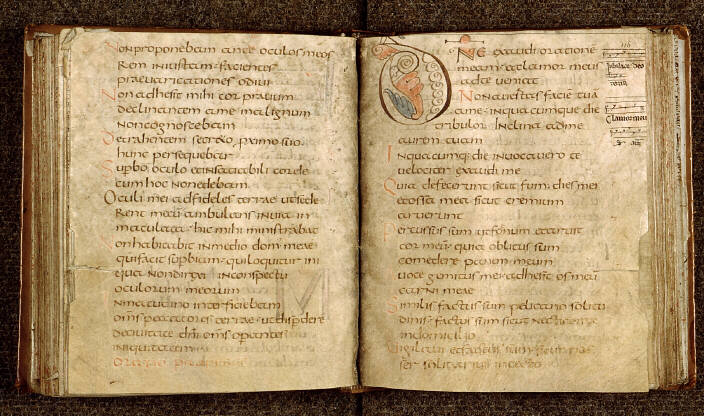 Non proponebam ante oculos meos
Rem iniustam facientes
praevaricationes odivi
Non adhesit mihi cor pravum
declinantem a me malignum
non cognoscebam
Detrahentem secreto proximo suo
hunc persequebar
Superbo oculo et insatiabili corde
cum hoc non edebam
Oculi mei ad fideles terrae ut sede
Rent mecum ambulans in via in
maculata hic mihi ministrabat
Non habitabit in medio domus meae
qui facit superbiam qui loquitur ini
qua non direxit in conspectu
oculorum meorum
In matutino interficiebam
omnes peccatores terrae ut disperdere
de civitate dni omnes operantes
iniquitatem
DNE exaudi orationē
meam et clamor meus
ad te veniat
Non avertas faciē tuā
a me in quacumque die
tribulor Inclina ad me
aurem tuam
In quacumq; die invocavero te
velociter exaudi me
Quia defecerunt sicut fumus dies mei
et ossa mea sicut cremium
aruerunt
Percussus sum ut foenum et aruit
cor meum quia oblitus sum
comedere panem meum
Voce gemitus mei adhesit os meū
carni meae
Similis factus sum pelicano solitu
dinis factus sum sicut nycticorax
in domicilio
Vigilavi et factus sum sicut pas
ser solitarius in tecto
Jubilate deo
Clamor meus